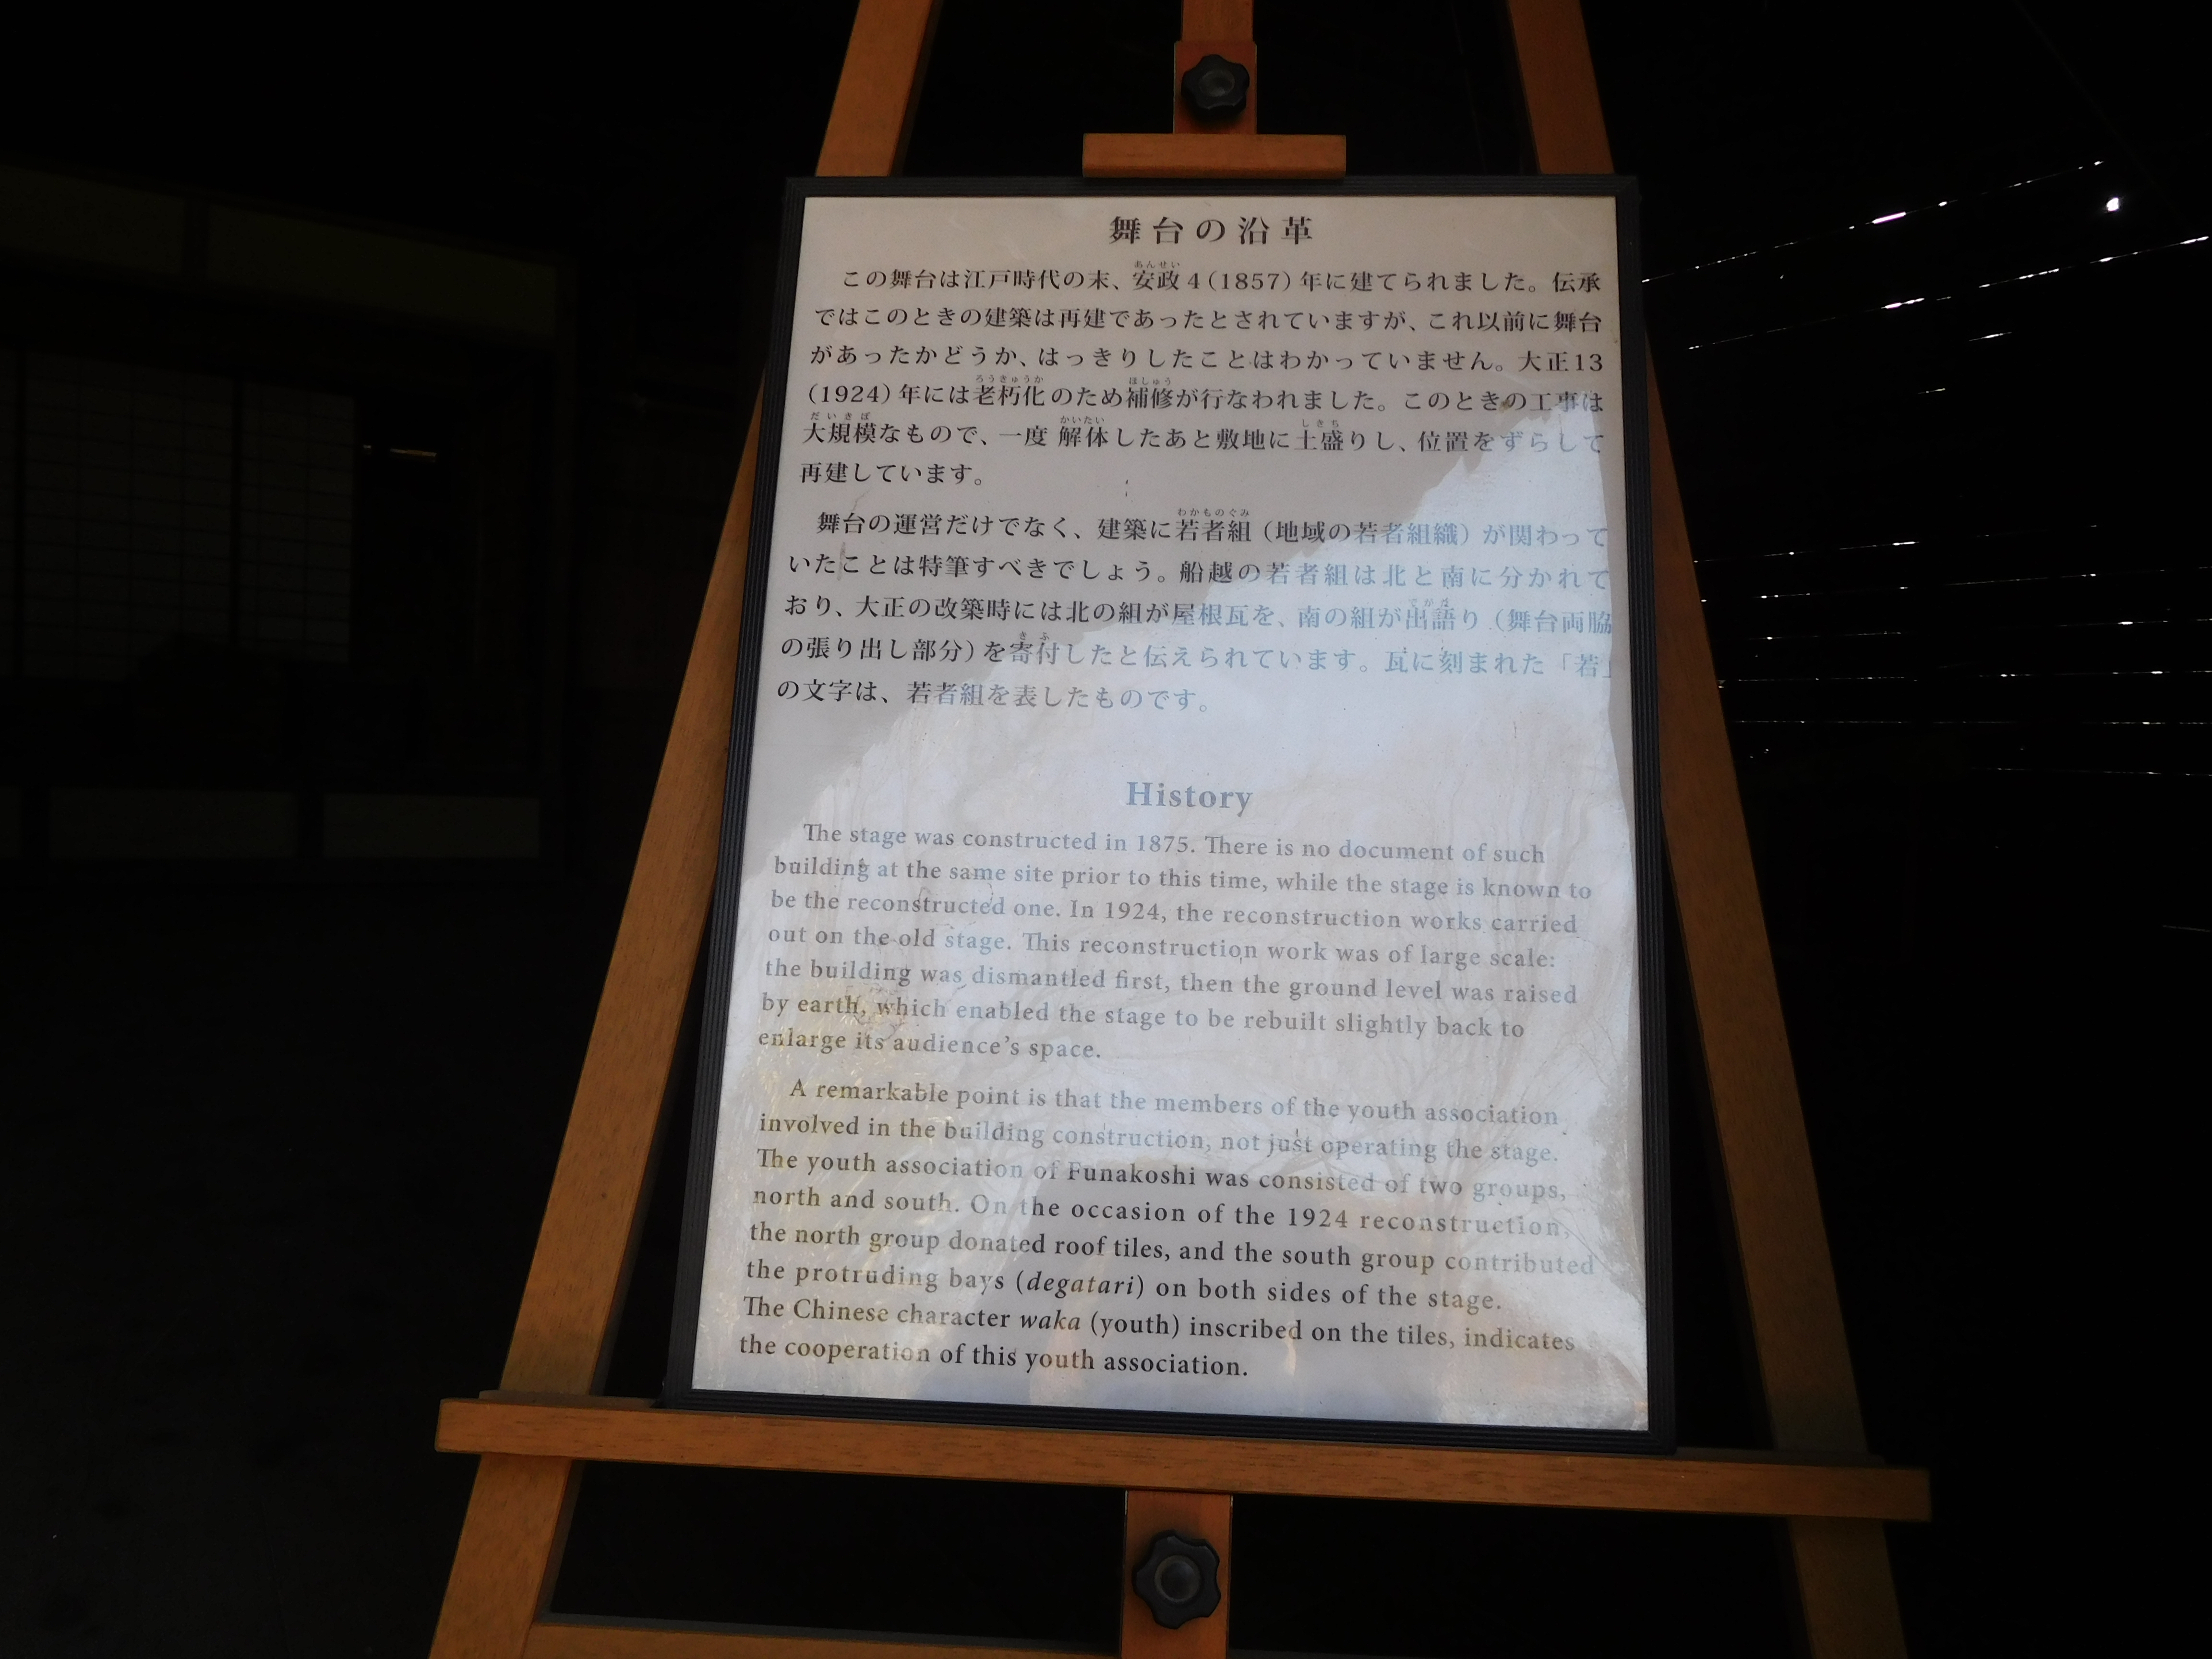 舞台の沿革
この舞台は江戸時代の末、安政4(1857)年に建てられました。伝承
ではこのときの建築は再建であったとされていますが、これ以前に舞台
があったかどうか、はっきりしたことはわかっていません。大正13
(1924)年には老朽化のため補修が行なわれました。このときの工事は
大規模なもので、一度 解体したあと敷地に土盛りし、位置をずらして
再建しています。
舞台の運営だけでなく、建築に若者組(地域の若者組織)が関わって
いたことは特筆すべきでしょう。船越の若者組は北と南に分かれて
おり、大正の改築時には北の組が屋根瓦を、南の組が出語り(舞台両脇
の張り出し部分)を寄付したと伝えられています。瓦に刻まれた「若」
の文字は、若者組を表したものです。
History
The stage was constructed in 1875. There is no document of such
building at the same site prior to this time, while the stage is known to
be the reconstructed one. In 1924, the reconstruction works carried
out on the old stage. This reconstruction work was of large scale:
the building was dismantled first, then the ground level was raised
by earth, which enabled the stage to be rebuilt slightly back to
enlarge its audience's space.
A remarkable point is that the members of the youth association
involved in the building construction, not just operating the stage.
The youth association of Funakoshi was consisted of two groups,
north and south. On the occasion of the 1924 reconstruction,
the north group donated roof tiles, and the south group contributed
the protruding bays (degatari) on both sides of the stage.
The Chinese character waka (youth) inscribed on the tiles, indicates
the cooperation of this youth association.